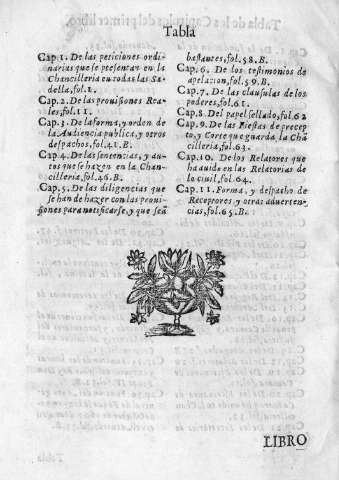 Tabla
Cap. 1. De las peticiones ordi-
narias que se presentan en la
Chancilleria en todas las Sa-
della, fol. 1.
Cap. 2. De las prouisiones Rea-
les, fol. 11.
Cap. 3. De la forma, y orden de
la Audiencia publica, y otros
despachos, fol. 41. B.
Cap. 4. De las sentencias, y au-
tos que se hazen en la Chan-
cilleria, fol. 46. B.
Cap. 5. De las diligencias que
se han de hazer con las proui-
siones para notificarse, y que seã
bastantes, fol. 58. B.
Cap. 6. De los testimonios de
apelacion, fol. 59. B.
Cap. 7. De las clausulas de los
poderes, fol. 61.
Cap. 8. Del papel sellado, fol. 62
Cap. 9. De Fiestas de precep-
to, y Corte que guarda la Chã
cilleria, fol. 63.
Cap. 10. De los Relatores que
ha auido en las Relatorias de
lo ciuil, fol. 64.
Cap. 11. Forma, y despacho de
Receptores, y otras aduerten-
cias, fol. 65. B.
LIBRO